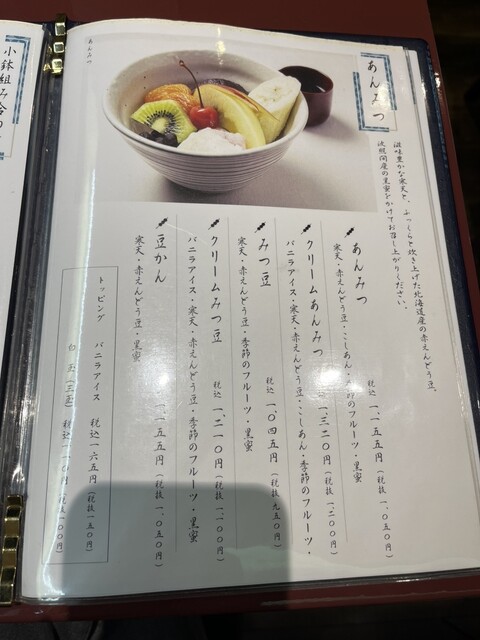 あんみつ
滋味豊かな寒天と、ふっくらと炊き上げた北海道産の赤えんどう豆。
波照間産の黒蜜をかけてお召し上がりください。
あんみつ 税込 一、一五五円(税抜 一、〇五〇円)
寒天・赤えんどう豆・こしあん・季節のフルーツ・黒蜜
クリームあんみつ 税込 一、三二〇円(税抜 一、二〇〇円)
バニラアイス・寒天・赤えんどう豆・こしあん・季節のフルーツ・
みつ豆 税込 一、〇四五円(税抜 九五〇円)
寒天・赤えんどう豆・季節のフルーツ・黒蜜
クリームみつ豆 税込 一、二一〇円(税抜 一、一〇〇円)
バニラアイス・寒天・赤えんどう豆・季節のフルーツ・黒蜜
豆かん 一、一五五円(税抜 一、〇五〇円)
寒天・赤えんどう豆・黒蜜
トッピング バニラアイス 税込 一六五円(税抜 一五〇円)
白玉(三個) 税込 一一〇円(税抜 一〇〇円)
あんみつ
小鉢組み合わ